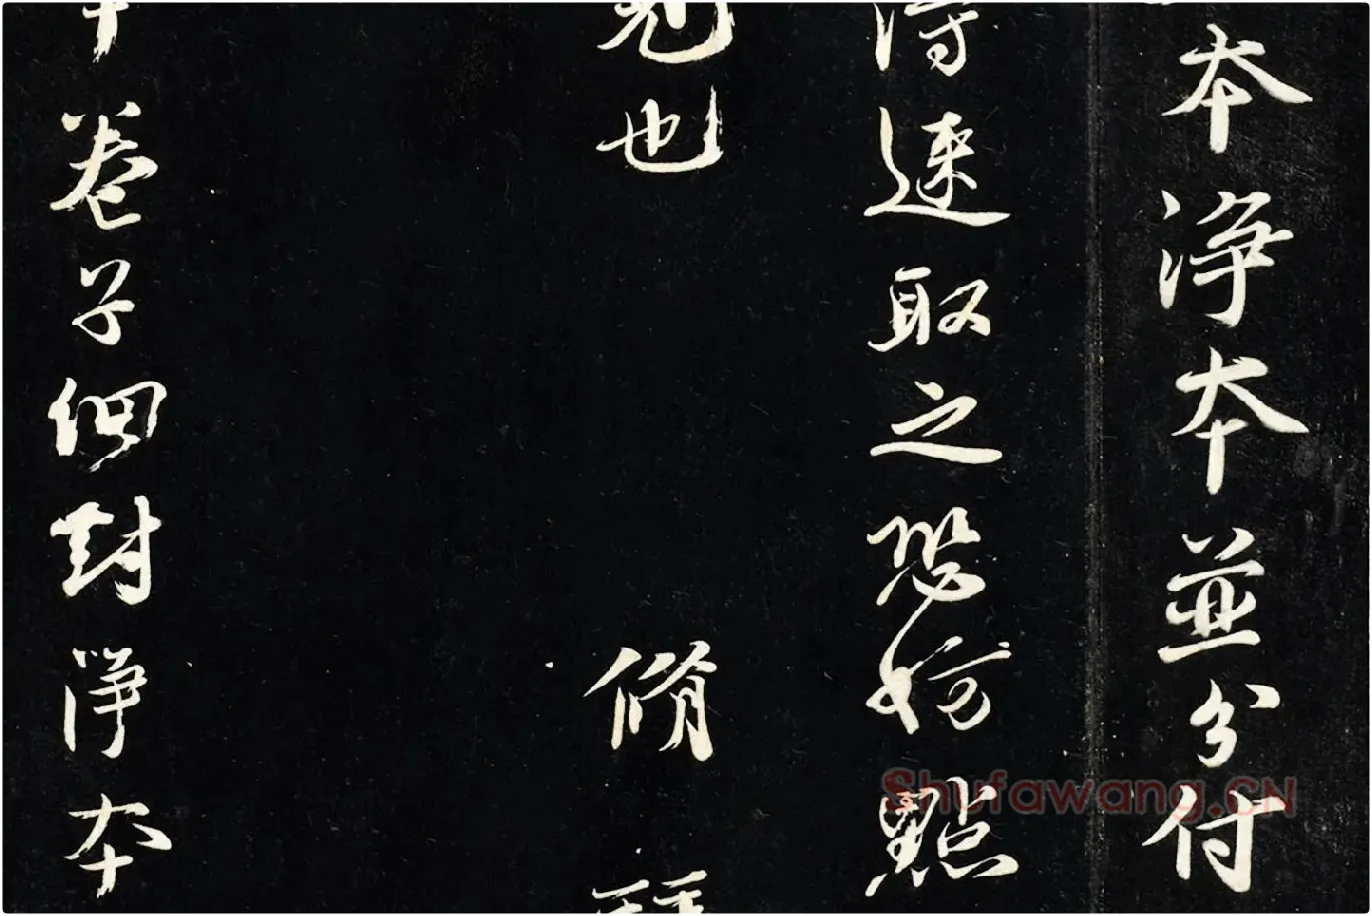 本淨本並分付
得速取之恐妨點
也
脩
卷子細對淨本
Shufawang.CN